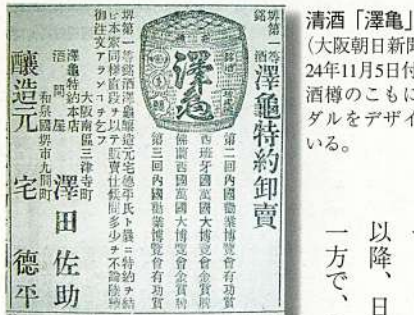 堺第一等
銘酒
澤亀特約卸賣
澤亀
第二回内國勸業博覽會有功賞
西班牙國萬國大博覽會金賞牌
佛蘭西國萬國大博覽會金賞牌
第三回内國勸業博覽會有功賞
堺第一等銘酒澤亀醸造元宅德平氏ト
特約ヲ結
ヒ本家同樣直段ヲ以テ販賣仕候間多少ヲ不論陸續
御注文アランコヲ乞フ
大坂南區三津寺町
澤亀特約本店
酒問屋
澤田佐助
和泉國堺市九間町
醸造元
宅
德平
清酒「澤亀」
(大阪朝日新聞
24年11月5日付
酒樽のこもに
ダルをデザイ
いる。
以降、日
一方で、